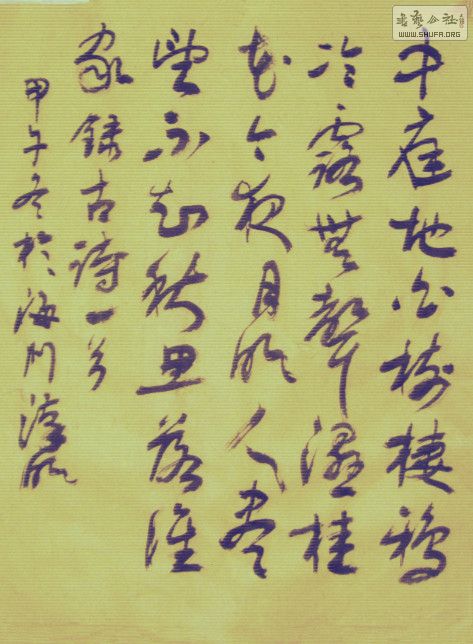 中庭地白樹棲鴉
冷露無聲濕桂
花今夜月明人盡
望不知秋思落誰
家錄古詩一首
甲午冬於海門
書藝公社
WWW.SHUFA.ORG